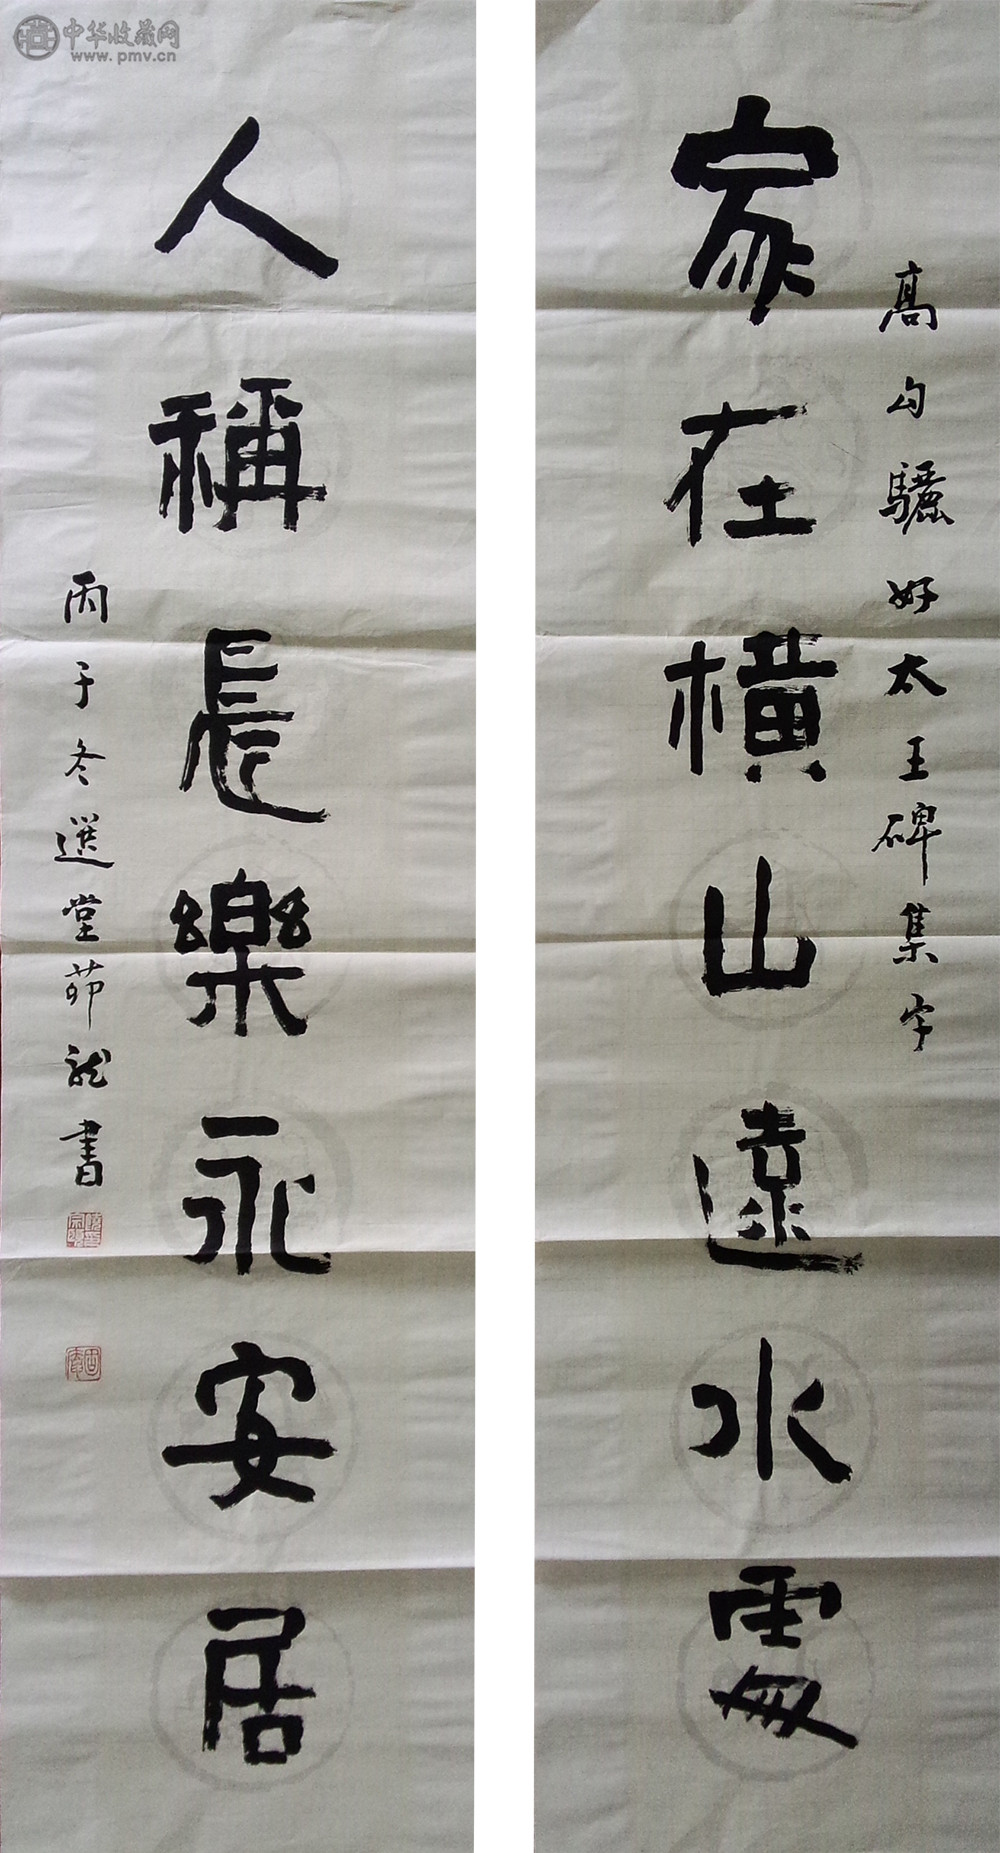 中华收藏网
www.pmv.cn
高句驪好太王碑集字
家在橫山遠水處
人稱長樂永安居
丙子冬選堂茆龍書